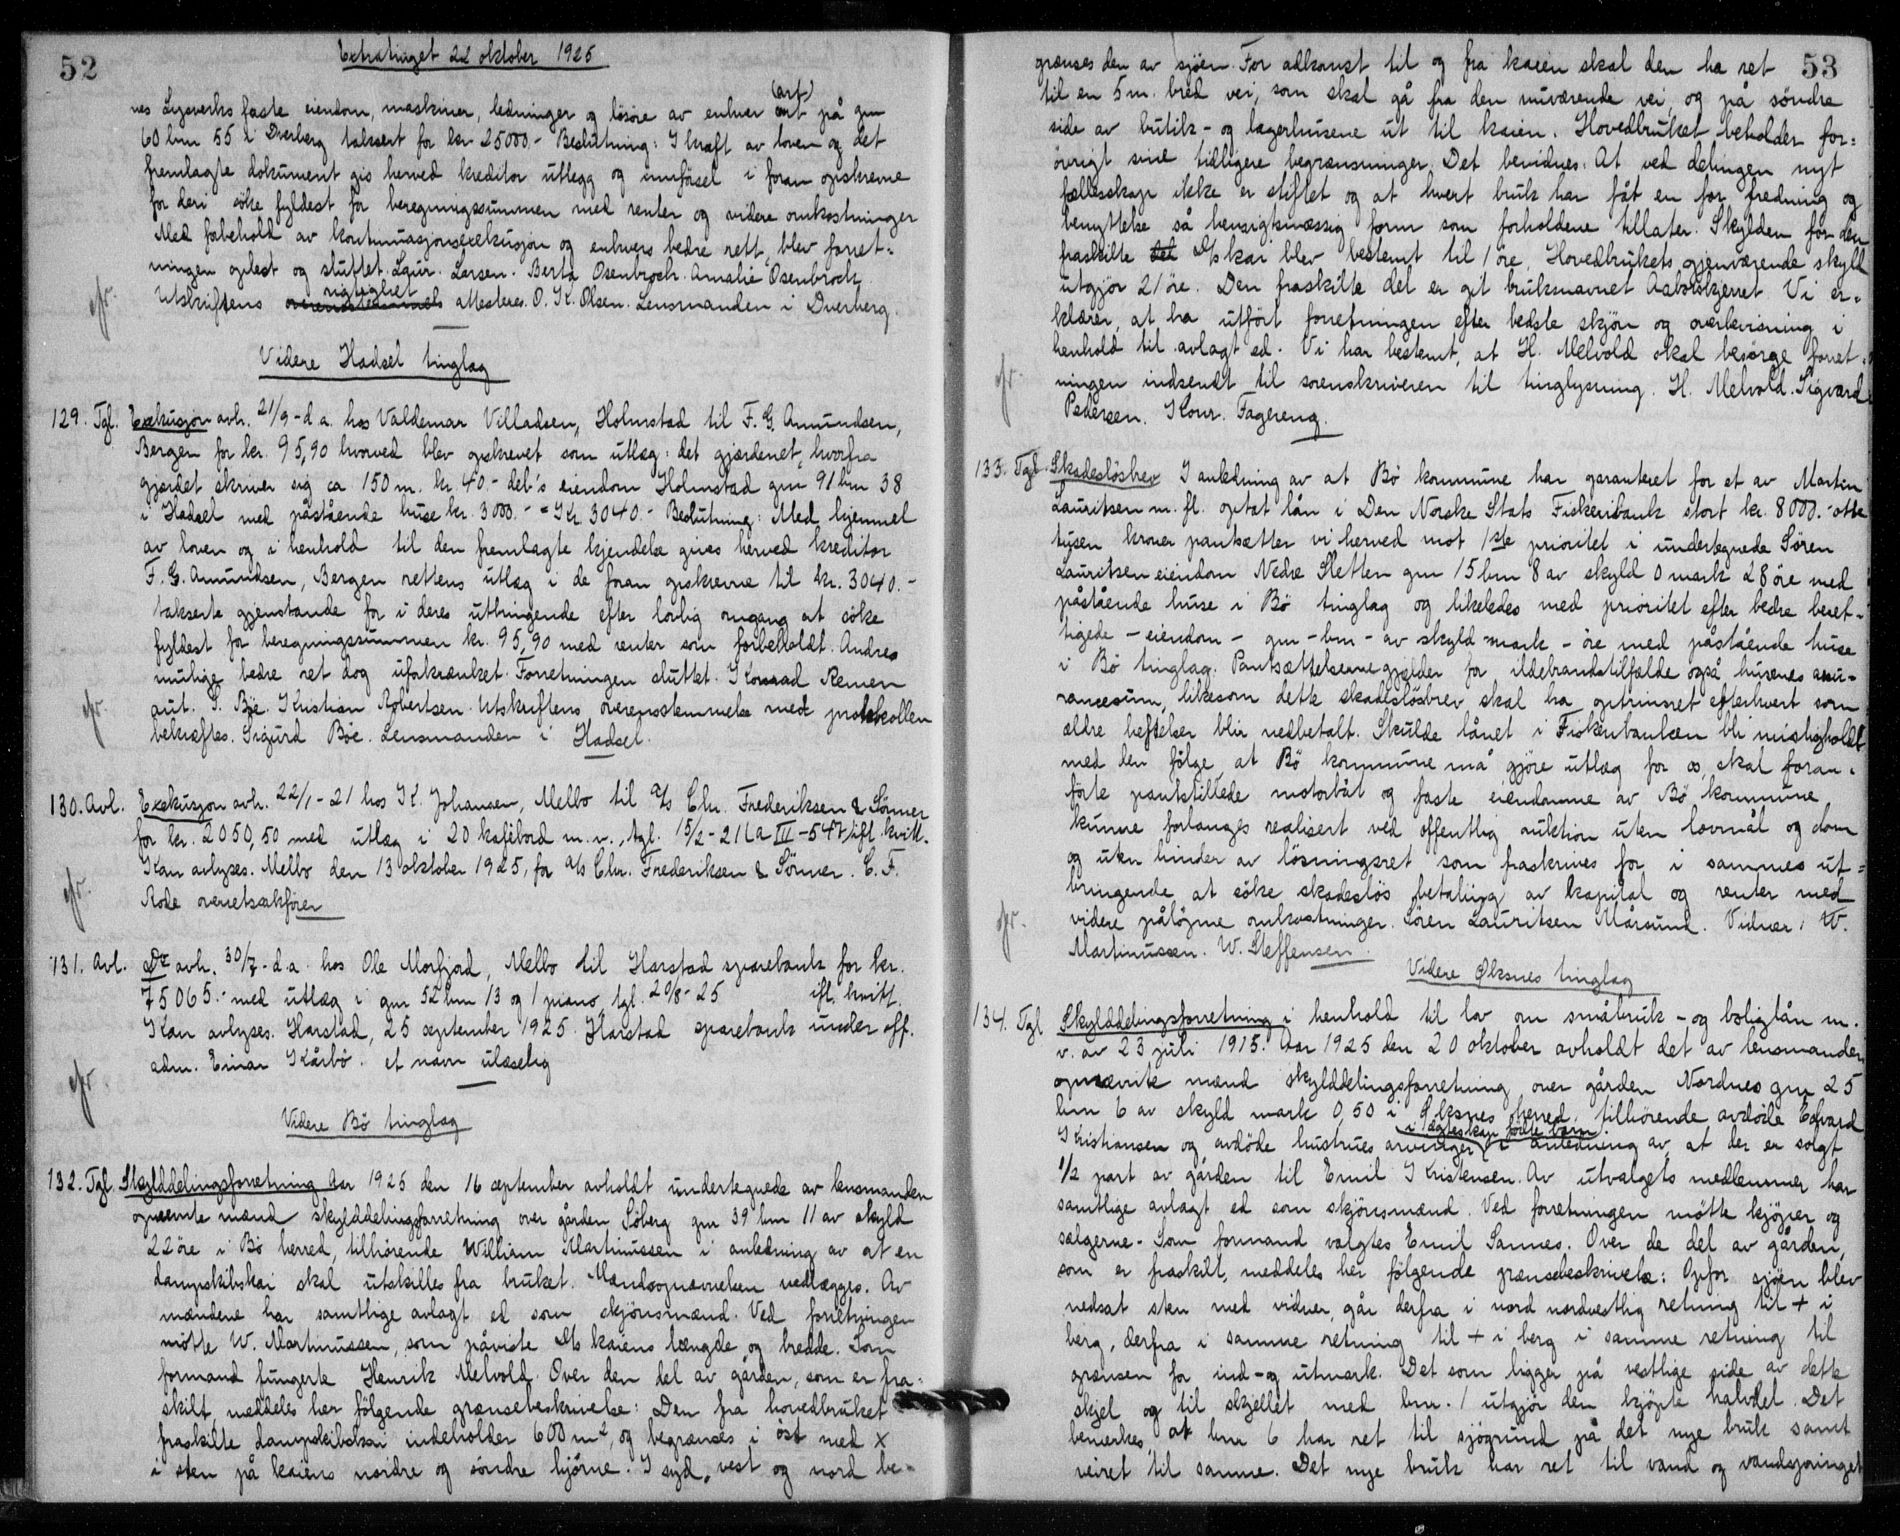 52
Extratinget 22 oktober 1925
nes Lysverks faste eiendom, maskiner, ledninger og lösöre av enhver art (art) på gnr
60 bnr 55 i Dverberg taksert for kr 25000.- Beslutning: I kraft av loven og det
fremlagte dokument gis herved kreditor utlegg og innförsel i foran opskrevne
for deri söke fyldest for beregningssummen med renter og videre omkostninger
Med forbehold av kontinuasjonsexekusjon og enhvers bedre rett, blev forret-
ningen oplest og sluttet. Lgur. Larsen. Berta Osenbroch. Amalie Osenbroch
Utskriftens overensstemmelse rigtighet attesteres. O. K. Olsen. Lensmanden i Dverberg.
Videre Hadsel tinglag
129. Tgl. Exekusjon avh. 21/9 - d.a. hos Valdemar Villadsen, Holmstad til F. G. Amundsen,
Bergen for kr. 95,90 hvorved blev opskrevet som utlæg: det gjærdenet, hvorfra
gjærdet skriver sig ca 150 m. kr. 40.- deb's eiendom Holmstad gnr 91 bnr 38
i Hadsel med påstående huse kr. 3000.- = Kr. 3040.- Beslutning: Med hjemmel
av loven og i henhold til den fremlagte kjendelse gives herved kreditor
F. G. Amundsen, Bergen rettens utlæg i de foran opskrevne til kr. 3040.-
takserte gjenstande for i deres utbringende efter lovlig omgang at söke
fyldest for beregningssummen kr. 95,90 med renter som forbeholdt. Andres
mulige bedre ret dog uforkrænket. Forretningen sluttet. Konrad Remen
aut. S. Böe. Kristian Robertsen. Utskriftens overensstemmelse med protokollen
bekræftes. Sigurd Böe. Lensmanden i Hadsel.
130. Avl. Exekusjon avh. 22/1 - 21 hos K. Johansen, Melbo til A/S Chr. Frederiksen & Sönner
for kr. 2050,50 med utlæg i 20 kafébord m.v., tgl. 15/2 - 21 La III - 547, ifl. kvitt.
Kan avlyses. Melbo den 13 oktober 1925, for A/S Chr. Frederiksen & Sönner. C. F.
Rode overretssakförer
131. Avl. Do avh. 30/7 - d.a. hos Ole Morfjord, Melbo til Harstad sparebank for kr.
75065.- med utlæg i gnr 52 bnr 13 og 1 piano, tgl. 20/8 - 25 ifl. kvitt.
Kan avlyses. Harstad, 25 september 1925. Harstad sparebank under off.
adm. Einar Kårbö. et navn ulæselig
Videre Bö tinglag
132. Tgl. Skylddelingsforretning Aar 1925 den 16 september avholdt undertegnede av lensmanden
opnævnte mænd skylddelingsforretning over gården Söberg gnr 39 bnr 11 av skyld
22 öre i Bö herred, tilhörende William Martinussen i anledning av at en
dampskibskai skal utskilles fra bruket. Mændsopnævnelsen vedlægges. Av
mændene har samtlige avlagt ed som skjönsmænd. Ved forretningen
mötte W. Martinussen, som påviste D/S kaiens længde og bredde. Som
formand fungerte Henrik Melvold. Over den del av gården, som er fra-
skilt, meddeles her följende grænsebeskrivelse: Den fra hovedbruket
fraskilte dampskibskai indeholder 600 m², og begrænses i öst med X
i sten på kaiens nordre og söndre hjörne. I syd, vest og nord be-
53
grænses den av sjöen. For adkomst til og fra kaien skal den ha ret
til en 5 m. bred vei, som skal gå fra den nuværende vei, og på söndre
side av butik- og lagerhusene ut til kaien. Hovedbruket beholder for-
övrigt sine tidligere begrænsninger. Det bevidnes: At ved delingen nyt
fællesskap ikke er stiftet og at hvert bruk har fåt en for fredning og
benyttelse så hensigtsmæssig form som forholdene tillater. Skylden for den
fraskilte del D/S kai blev bestemt til 1 öre. Hovedbrukets gjenværende skyld
utgjör 21 öre. Den fraskilte del er git bruksnavnet Aasbokskjerret. Vi er-
klærer, at ha utfört forretningen efter bedste skjön og overbevisning i
henhold til avlagt ed. Vi har bestemt, at H. Melvold skal besörge forret-
ningen indsendt til sorenskriveren til tinglysning. H. Melvold. Sigvard
Pedersen. Konr. Fagereng.
133. Tgl. Skadeslösbrev I anledning av at Bö kommune har garanteret for et av Martin
Lauritsen m.fl. optat lån i Den Norske Stats Fiskeribank stort kr. 8000.- otte
tusen kroner pantsætter vi herved mot 1ste prioritet i undertegnede Sören
Lauritsen eiendom Nedre Sletten gnr 15 bnr 8 av skyld 0 mark 28 öre med
påstående huse i Bö tinglag og likeledes med prioritet efter bedre beret-
tigede - eiendom - gnr - bnr - av skyld mark - öre med påstående huse
i Bö tinglag. Pantsættelserne gjælder for ildebrandstilfælde også husenes assu-
rancesum, likesom dette skadeslösbrev skal ha optrinsret efterhvert som
ældre heftelser blir nedbetalt. Skulde lånet i Fiskeribanken bli misligholdt
med den fölge, at Bö kommune må gjöre utlæg for os, skal foran-
förte pantstillede motorbåt og faste eiendomme av Bö kommune
kunne forlanges realisert ved offentlig auktion uten lovmål og dom
og uten hinder av lösningsret som fraskrives for i sammes ut-
bringende at söke skadeslös betaling av kapital og renter med
videre pålöpne omkostninger. Sören Lauritsen Mårsund. Vidner: W.
Martinussen. W. Steffensen
Videre Øksnes tinglag
134. Tgl Skylddelingsforretning i henhold til lov om småbruk- og boliglån m.
v. av 23 juli 1915. Aar 1925 den 20 oktober avholdt det av lensmanden
opnævnte mænd skylddelingsforretning over gården Nordnes gnr 25
bnr 6 av skyld mark 0,50 i Øksnes herred, tilhörende avdöde Edvard
Kristiansen og avdöde hustrues arvinger i ægteskap födte barn i anledning av, at der er solgt
1/2 part av gården til Emil Kristensen. Av utvalgets medlemmer har
samtlige avlagt ed som skjönsmænd. Ved forretningen mötte kjöper og
sælgerne. Som formand valgtes Emil Sannes. Over de del av gården,
som er fraskilt, meddeles her fölgende grænsebeskrivelse: Opfor sjöen blev
nedsat sten med vidner, går derfra i nord nordvestlig retning til + i
berg, derfra i samme retning til + i berg i samme retning til
grænsen for ind- og utmark. Det som ligger på vestlige side av dette
skjel og til skjellet med bnr. 1 utgjör den kjöpte halvdel. Det
bemerkes, at bnr 6 har ret til sjögrund på det nye bruk samt
veiret til samme. Det nye bruk har ret til vand og vandspringet